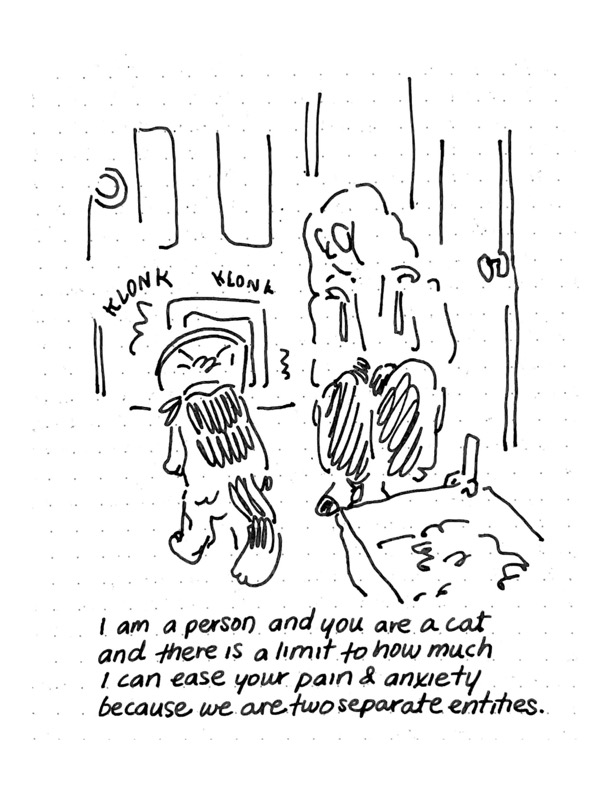 KLONK KLONK
I am a person and you are a cat
and there is a limit to how much
I can ease your pain & anxiety
because we are two separate entities.